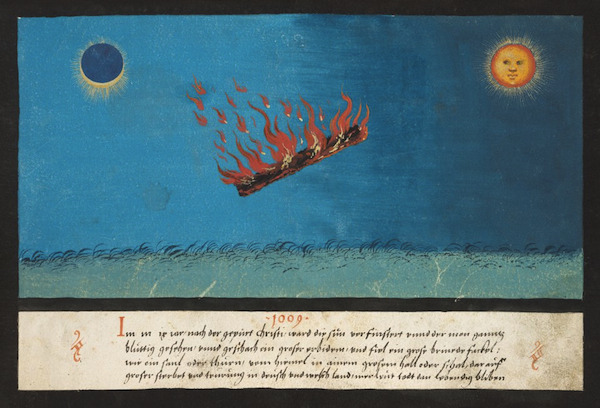 ·1009·
Im m ix iar nach der gepurt christi ward die sun verfinstert vnnd der mon gannz
bluttig gesehen vnnd geschach ein groser erpidem, vnnd fiel ein grose fackel:
wie ein saul oder thurn vom himel in ainem grosen hall oder schal, darauff
groser sterbet vnd teurung in deutsch vnd welsch land, mer leut todt lebendig bliben